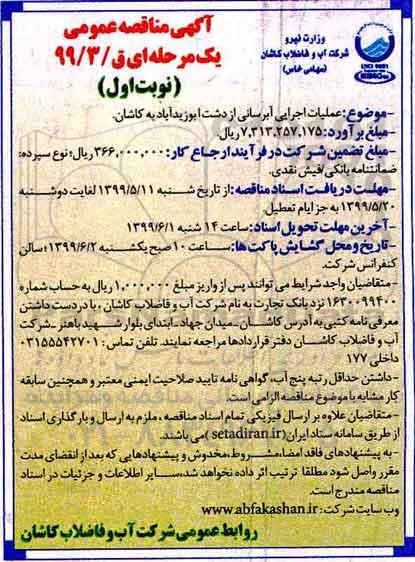 وزارت نیرو
شرکت آب و فاضلاب کاشان
(سهامی خاص)
آگهی مناقصه عمومی
یک مرحله ای ق/۹۹/۳
(نوبت اول)
-موضوع: عملیات اجرایی آبرسانی از دشت ابوزیدآباد به کاشان.
-مبلغ برآورد: ۷,۳۱۳,۲۵۷,۱۷۵ ریال.
-مبلغ تضمین شرکت در فرآیند ارجاع کار: ۳۶۶,۰۰۰,۰۰۰ ریال؛ نوع سپرده:
ضمانتنامه بانکی/فیش نقدی.
-مهلت دریافت اسناد مناقصه: از تاریخ شنبه ۱۳۹۹/۵/۱۱ لغایت دوشنبه
۱۳۹۹/۵/۲۰ به جز ایام تعطیل.
-آخرین مهلت تحویل اسناد: ساعت ۱۴ شنبه ۱۳۹۹/۶/۱
-تاریخ و محل گشایش پاکت ها: ساعت ۱۰ صبح یکشنبه ۱۳۹۹/۶/۲؛ سالن
کنفرانس شرکت.
-متقاضیان واجد شرایط می توانند پس از واریز مبلغ ۱,۰۰۰,۰۰۰ ریال به حساب شماره
۱۶۳۰۰۹۹۴۰۰ نزد بانک تجارت به نام شرکت آب و فاضلاب کاشان، با در دست داشتن
معرفی نامه کتبی به آدرس کاشان-میدان جهاد-ابتدای بلوار شهید باهنر-شرکت
آب و فاضلاب کاشان دفتر قراردادها مراجعه نمایند. تلفن تماس: ۰۳۱۵۵۵۴۲۷۰۱
داخلی ۱۷۷
-داشتن حداقل رتبه پنج آب، گواهی نامه تایید صلاحیت ایمنی معتبر و همچنین سابقه
کار مشابه با موضوع مناقصه الزامی است.
-متقاضیان علاوه بر ارسال فیزیکی تمام اسناد مناقصه، ملزم به ارسال و بارگذاری اسناد
از طریق سامانه ستاد ایران (setadiran.ir) می باشند.
-به پیشنهادهای فاقد امضا، مشروط، مخدوش و پیشنهادهایی که بعد از انقضای مدت
مقرر واصل شود مطلقا ترتیب اثر داده نخواهد شد، سایر اطلاعات و جزئیات در اسناد
مناقصه مندرج است.
وب سایت شرکت: www.abfakashan.ir
روابط عمومی شرکت آب و فاضلاب کاشان